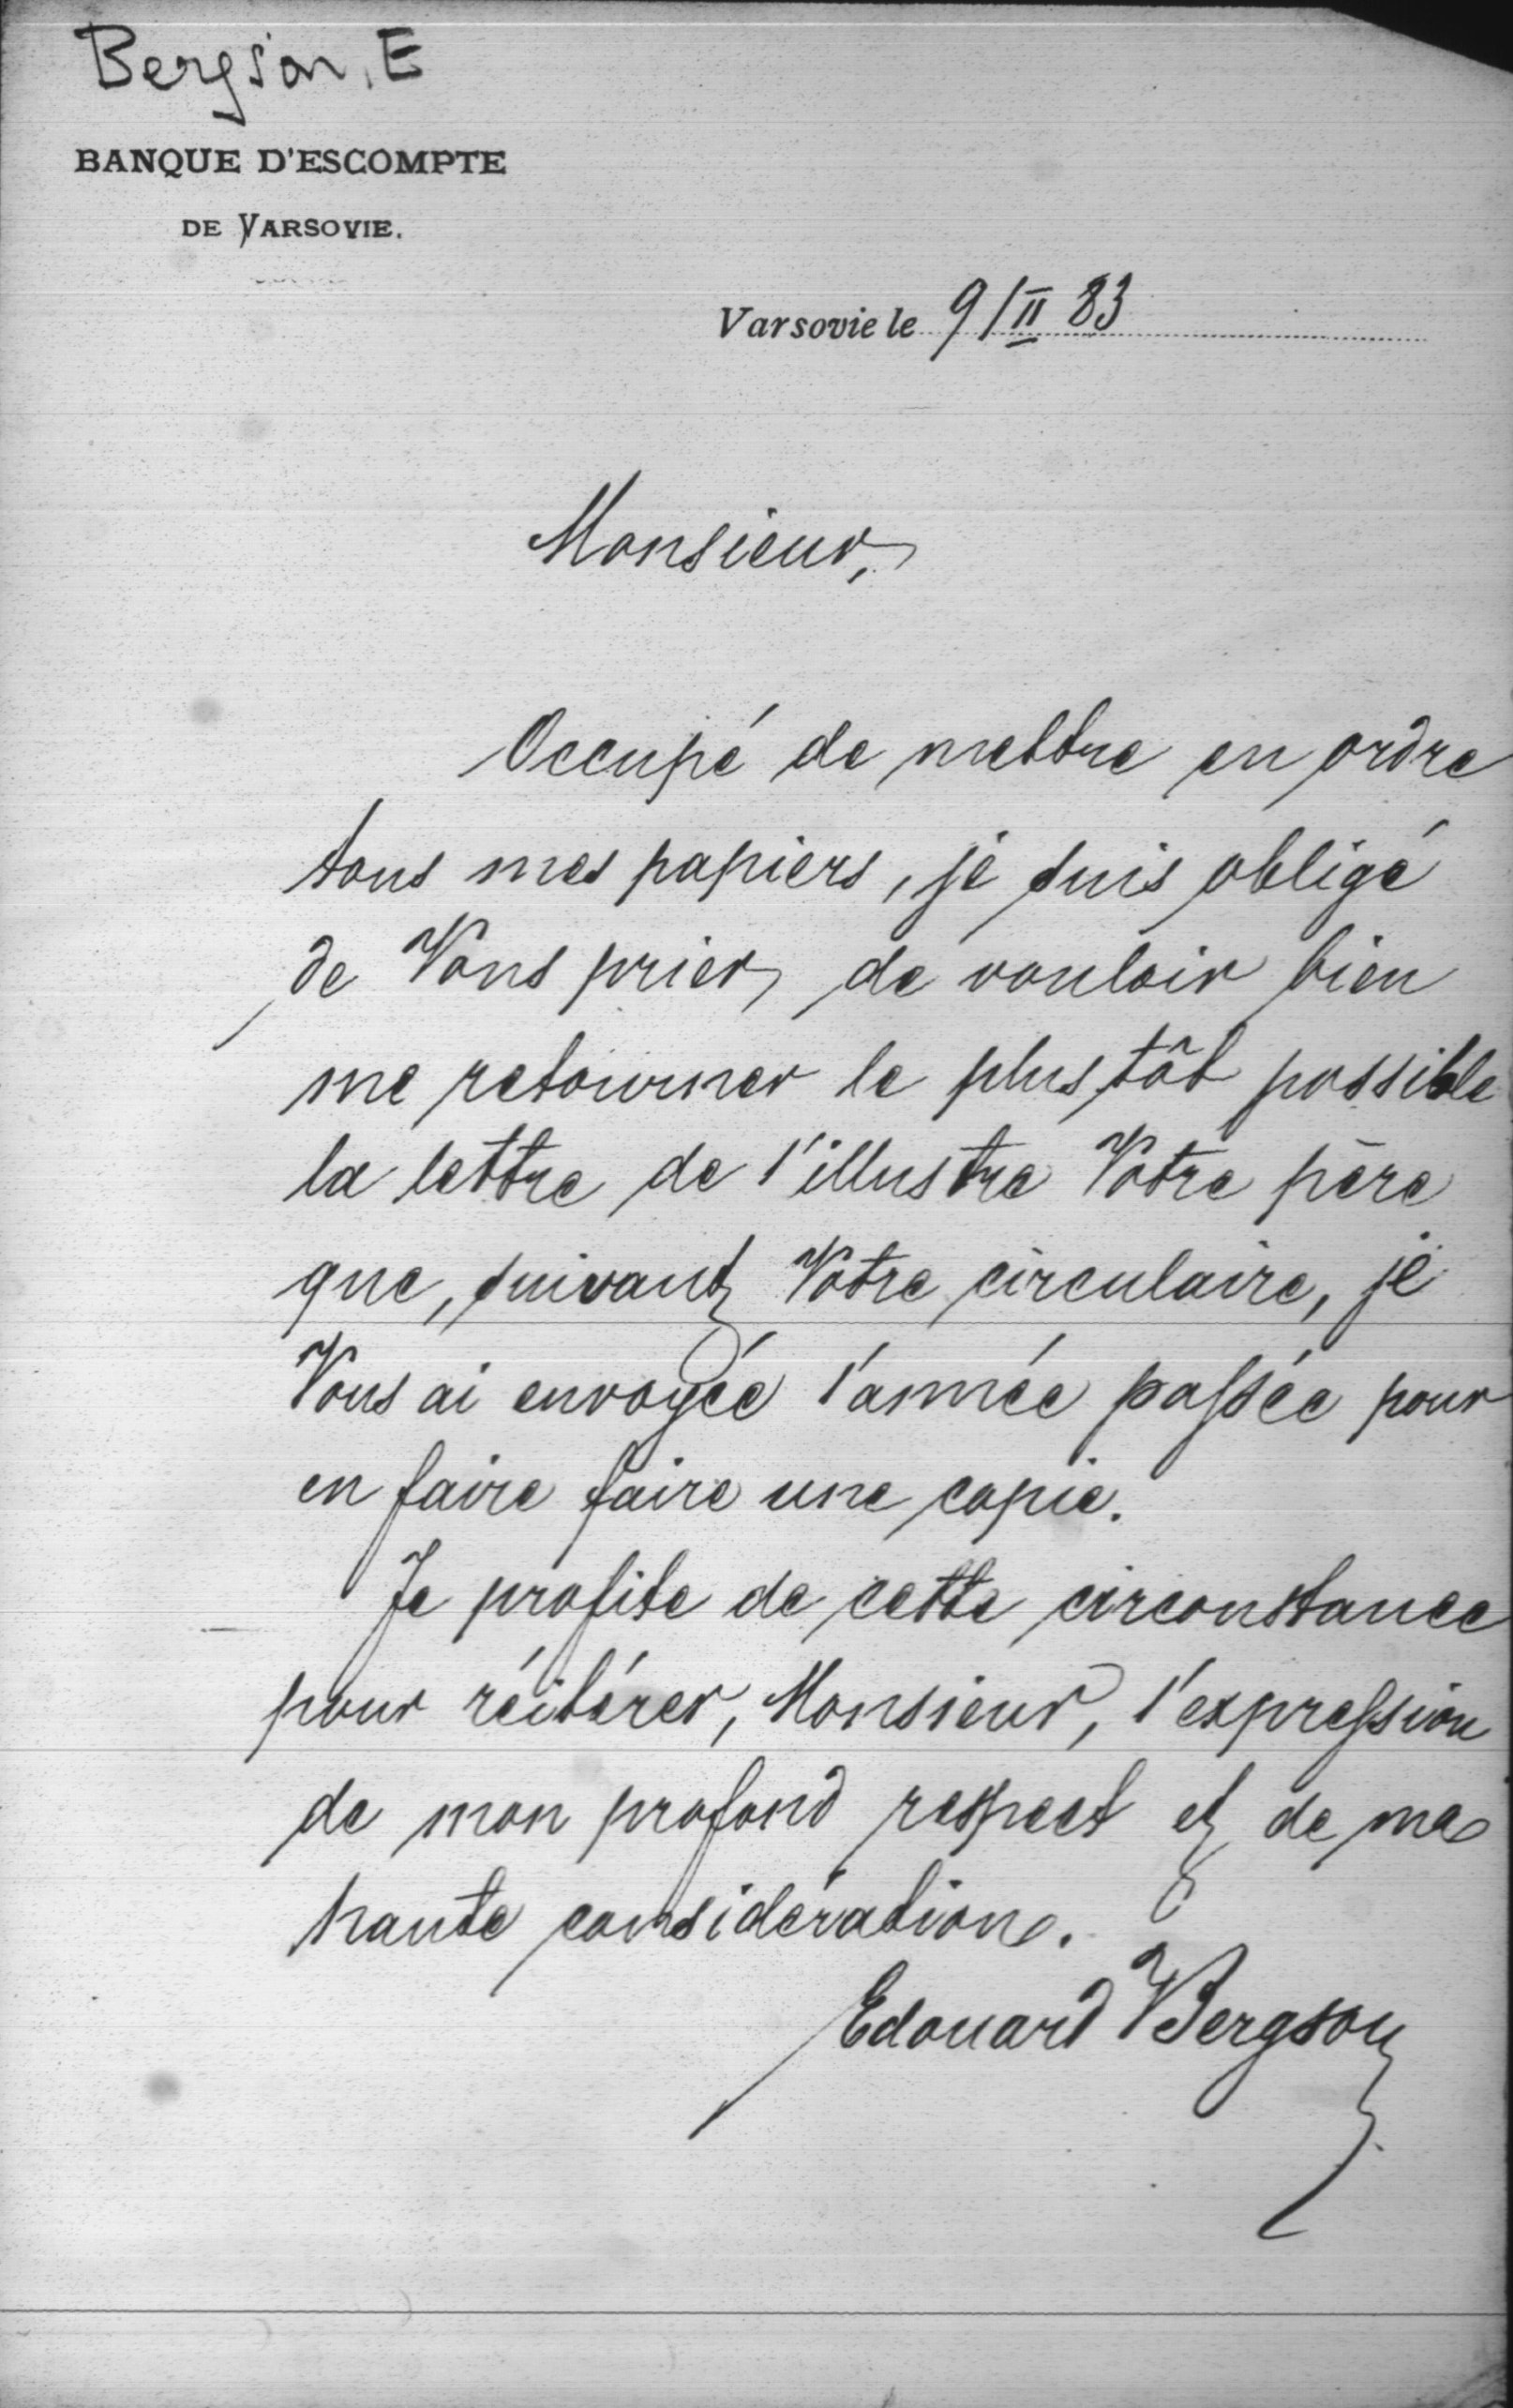 Bergson, E
BANQUE D'ESCOMPTE
DE VARSOVIE.
Varsovie le 9/II 83
Monsieur,
Occupé de mettre en ordre
tous mes papiers, je suis obligé
de Vous prier, de vouloir bien
me retourner le plus tôt possible
la lettre de l'illustre Votre père
que, suivant Votre circulaire, je
Vous ai envoyée l'année passée pour
en faire faire une copie.
Je profite de cette circonstance
pour réitérer, Monsieur, l'expression
de mon profond respect et de ma
haute considération.
Edouard Bergson